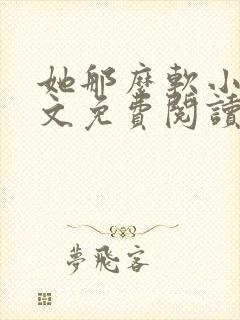 她那麼軟小
文免費閱讀
夢飛客